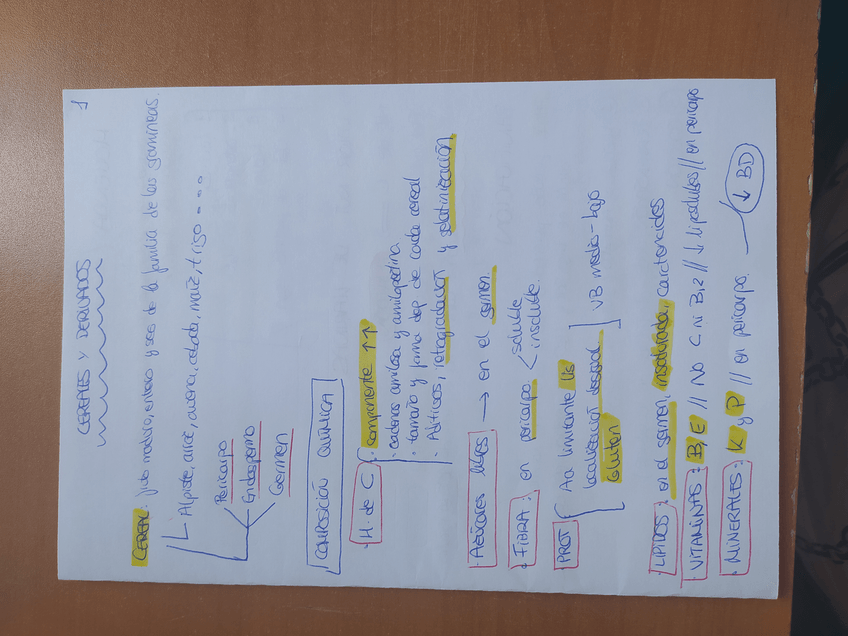 1
CEREALES Y DERIVADOS
CEREAL: fruto maduro, entero y seco de la familia de las gramíneas.
Alpiste, arroz, avena, cebada, maíz, trigo....
Pericarpo
Endospermo
Germen
COMPOSICIÓN QUÍMICA
· H. de C · componente ↑↑
· cadenas amilosa y amilopectina.
· tamaño y forma dep de cada cereal
· Aditivos, retrogradación y gelatinización
· AZÚCARES LIBRES → en el germen.
· FIBRA: en pericarpo < soluble
insoluble.
· PROT Aa limitante lis
localización desigual ] VB medio-bajo
Gluten
· LÍPIDOS: en el germen, insaturada, carotenoides
· VITAMINAS: B, E // No C ni B12 // ↓ liposolubles // en pericarpo
· MINERALES: K y P // en pericarpo. — ↓ BD